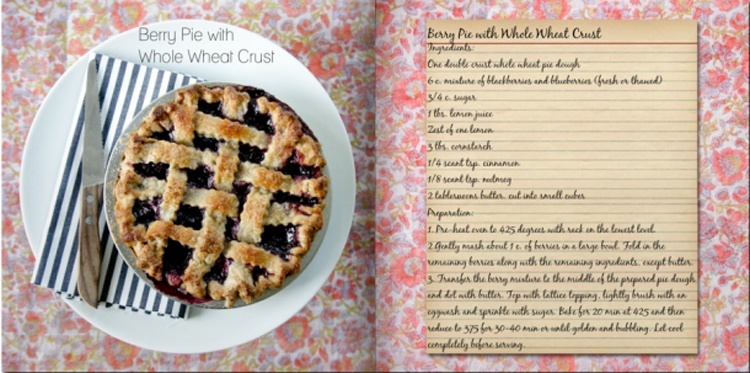 Berry Pie with
Whole Wheat Crust
Berry Pie with Whole Wheat Crust
Ingredients:
One double crust whole wheat pie dough
6 c. mixture of blackberries and blueberries (fresh or thawed)
3/4 c. sugar
1 tbs. lemon juice
Zest of one lemon
3 tbs. cornstarch
1/4 scant tsp. cinnamon
1/8 scant tsp. nutmeg
2 tablespoons butter, cut into small cubes
Preparation:
1. Pre-heat oven to 425 degrees with rack on the lowest level.
2.Gently mash about 1 c. of berries in a large bowl. Fold in the
remaining berries along with the remaining ingredients, except butter.
3. Transfer the berry mixture to the middle of the prepared pie dough
and dot with butter. Top with lattice topping, lightly brush with an
eggwash and sprinkle with sugar. Bake for 20 min at 425 and then
reduce to 375 for 30-40 min or until golden and bubbling. Let cool
completely before serving.